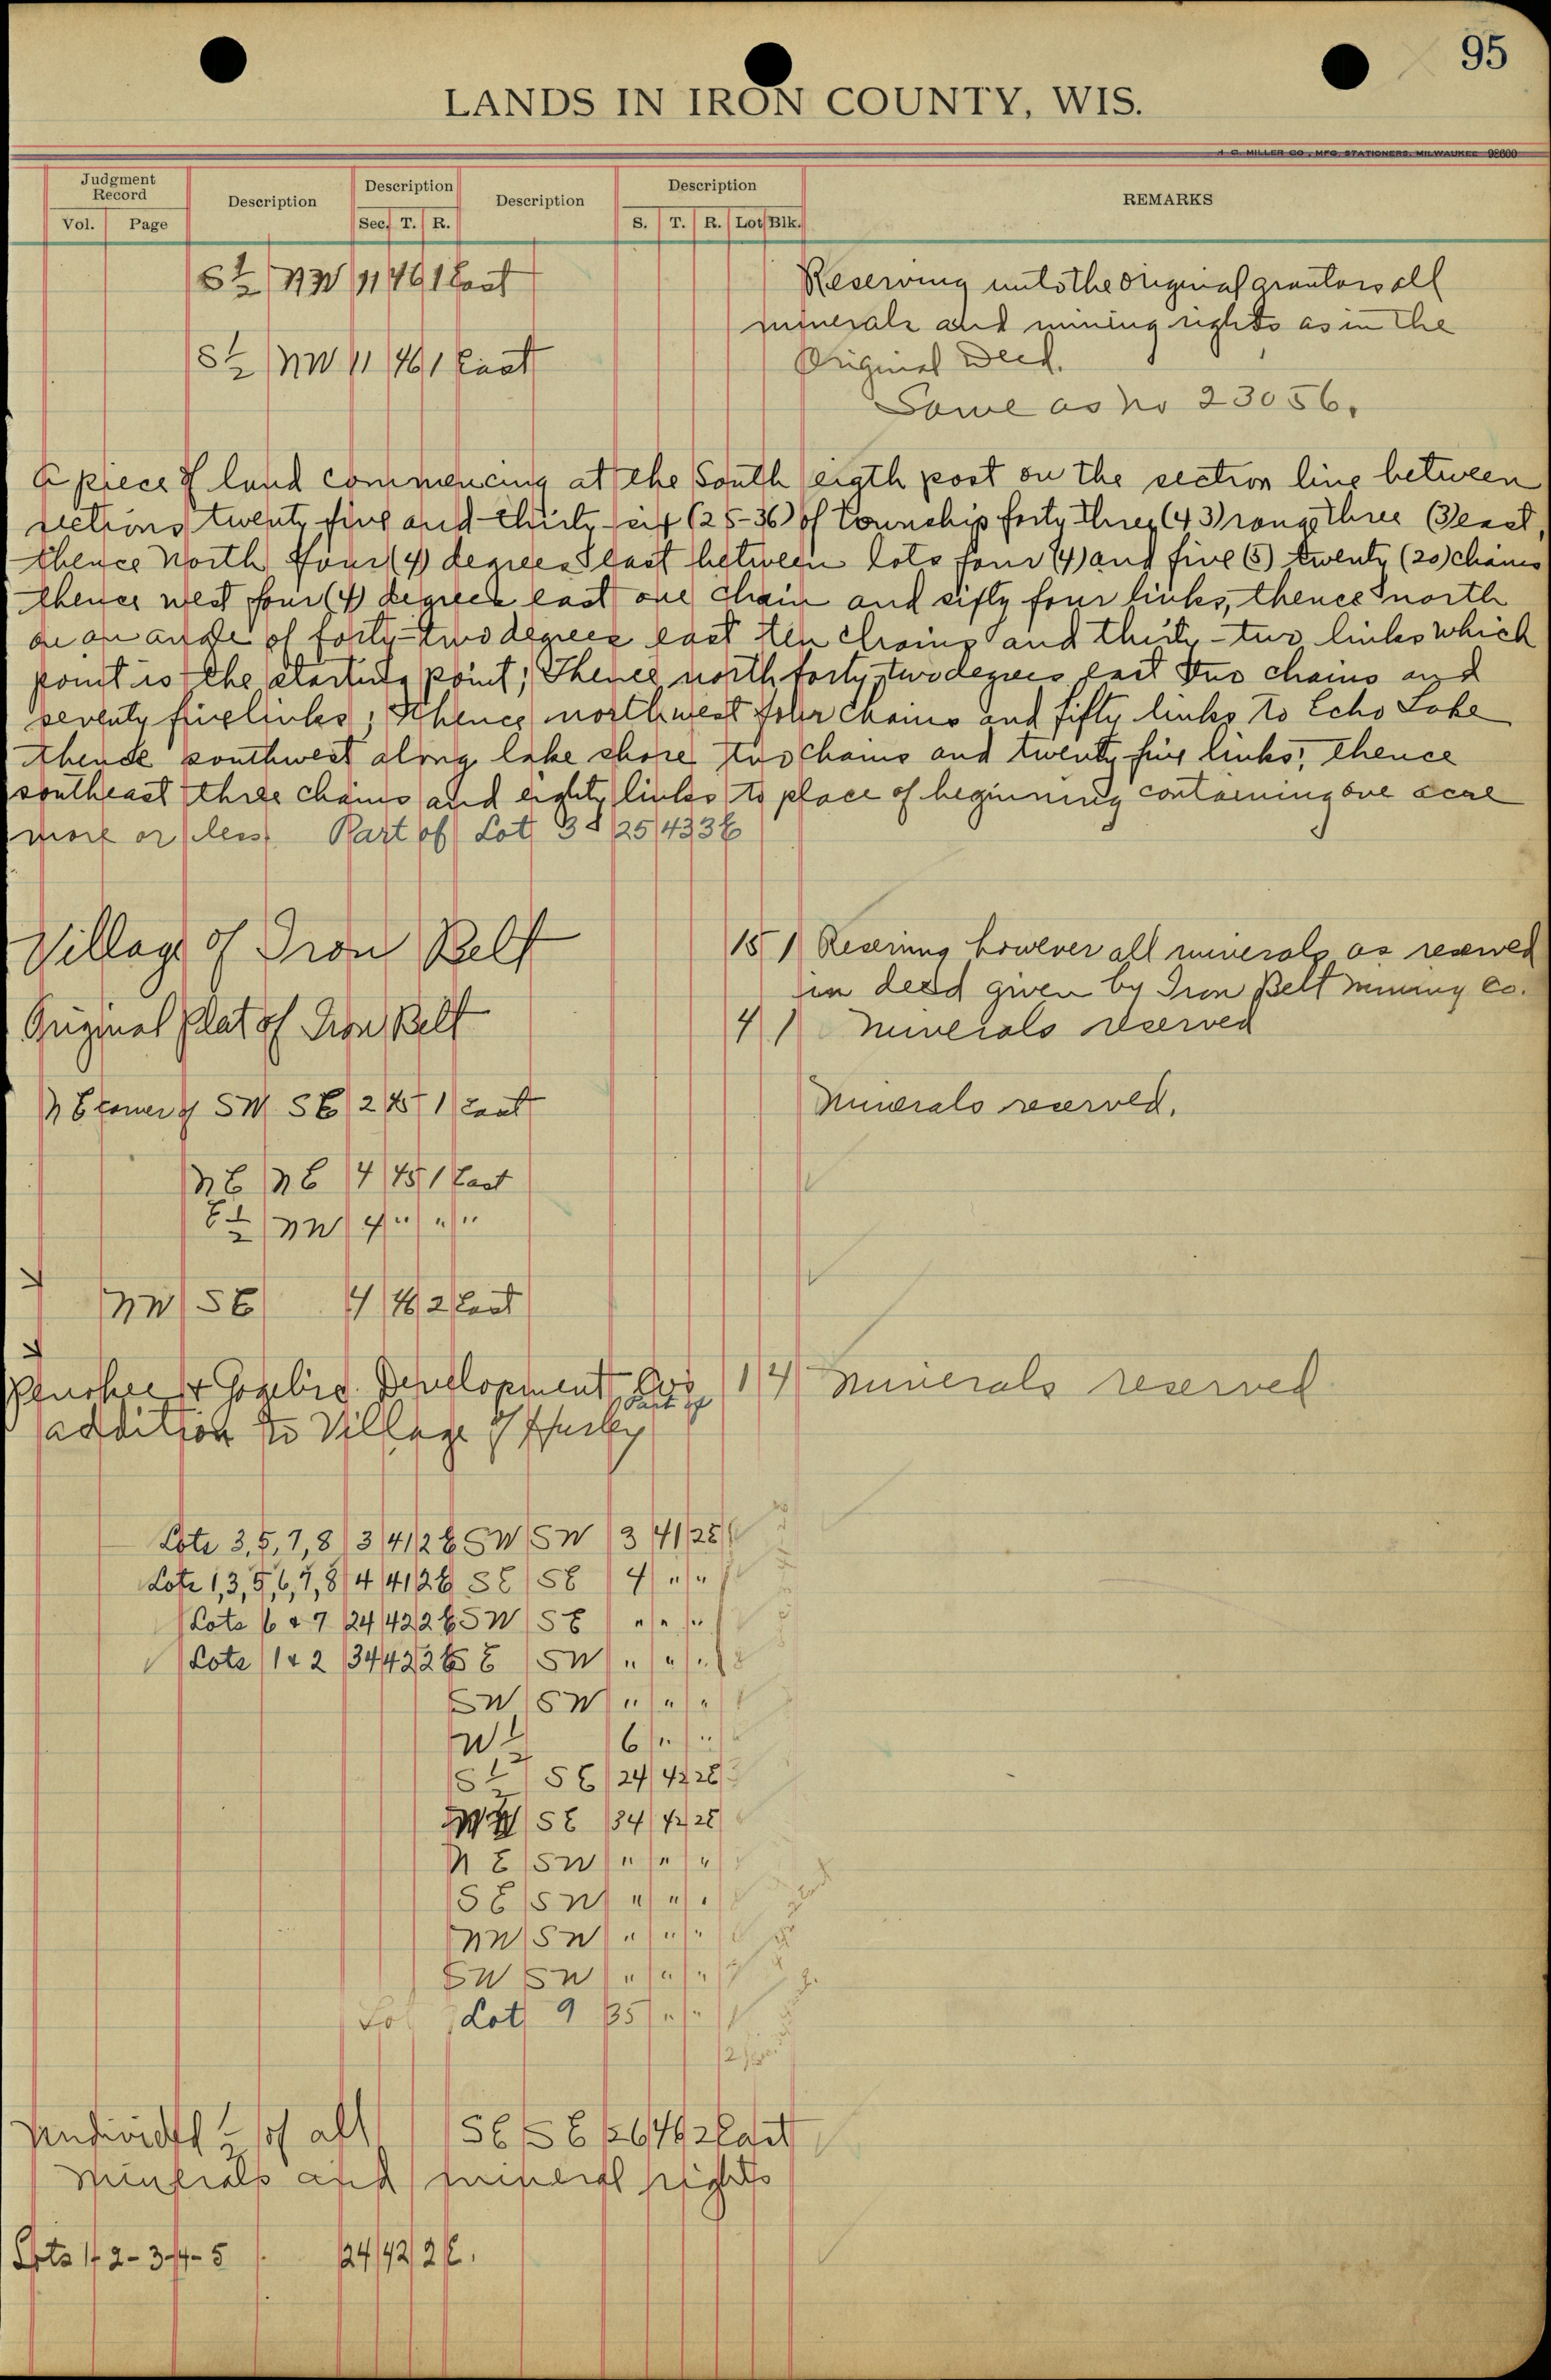 95
LANDS IN IRON COUNTY, WIS.
H. C. MILLER CO., MFG. STATIONERS, MILWAUKEE 92600
Judgment Record Description Description Description Description REMARKS
Vol. Page Sec. T. R. S. T. R. Lot Blk.
S½ NW 11 46 1 East Reserving unto the original grantors all
minerals and mining rights as in the
S½ NW 11 46 1 East Original Deed.
Same as no 23056.
A piece of land commencing at the South eigth post on the section line between
sections twenty five and thirty six (25-36) of Township forty three (43) range three (3) east,
thence North four (4) degrees east between lots four (4) and five (5) twenty (20) chains
thence west four (4) degrees east one chain and sifty four links, thence north
on an angle of forty-two degrees east ten chains and thirty-two links which
point is the starting point; Thence north forty two degrees east two chains and
seventy five links; Thence northwest four chains and fifty links to Echo Lake
thence southwest along lake shore two chains and twenty five links, thence
southeast three chains and eighty links to place of beginning containing one acre
more or less. Part of Lot 3 25 43 3E
Village of Iron Belt 15 1 Reserving however all minerals as reserved
in deed given by Iron Belt Mining Co.
Original Plat of Iron Belt 4 1 Minerals reserved
N E corner of SW SE 2 45 1 East Minerals reserved.
NE NE 4 45 1 East
E½ NW 4 " " "
NW SE 4 46 2 East
Penokee & Gogebic Development Cos 1 14 Minerals reserved
Part of
addition to Village of Hurley
Lots 3, 5, 7, 8 3 41 2E SW SW 3 41 2E
Lots 1, 3, 5, 6, 7, 8 4 41 2E SE SE 4 " "
Lots 6 & 7 24 42 2E SW SE " " "
Lots 1 & 2 34 42 2E SE SW " " "
SW SW " " "
W½ 6 " "
S½ SE 24 42 2E
SE 34 42 2E
NE SW " " "
SE SW " " "
NW SW " " "
SW SW " " "
Lot 9 35 " "
Undivided ½ of all SE SE 26 46 2 East
minerals and mineral rights
Lots 1-2-3-4-5 24 42 2E.